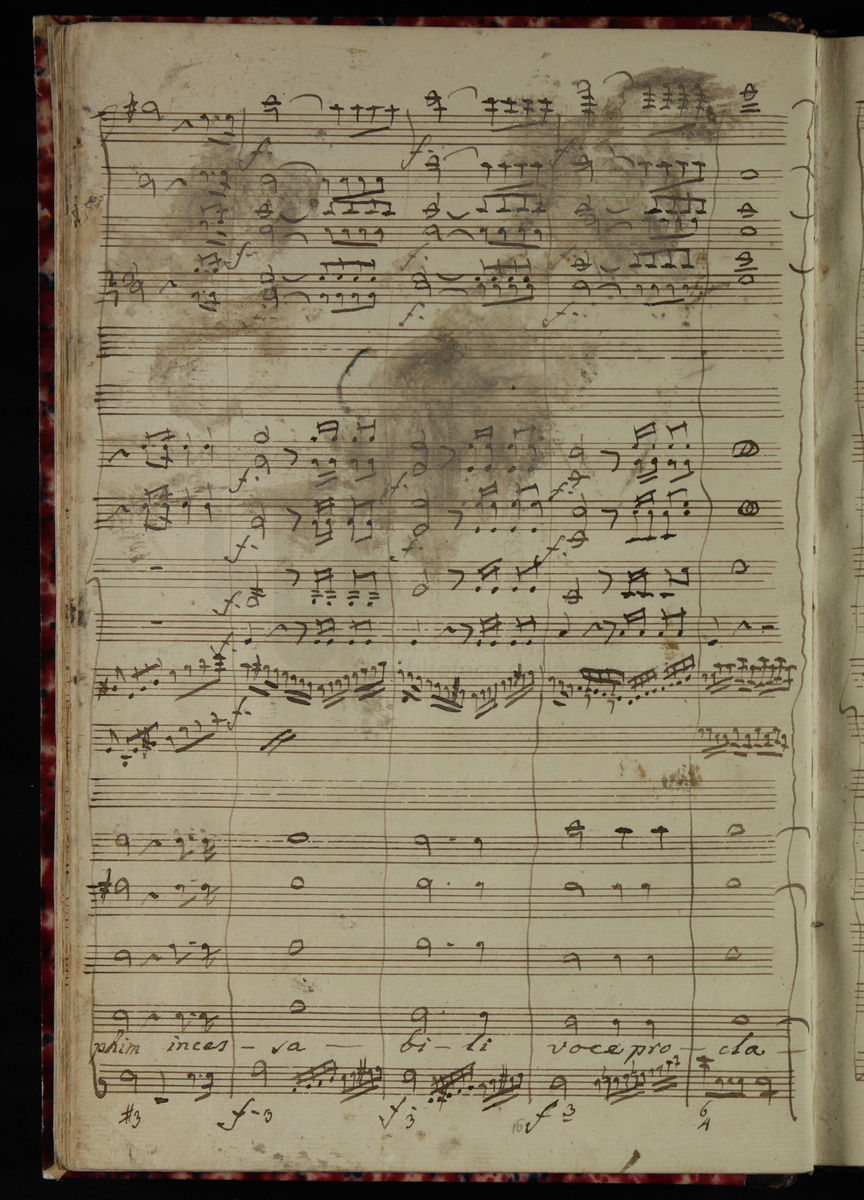 f. f. f.
f. f. f.
f. f. f.
f. f. f.
f.
f.
phim inces - sa - bi - li voce pro - cla -
#3 f - 3 f - 3 f 3 6
4
16